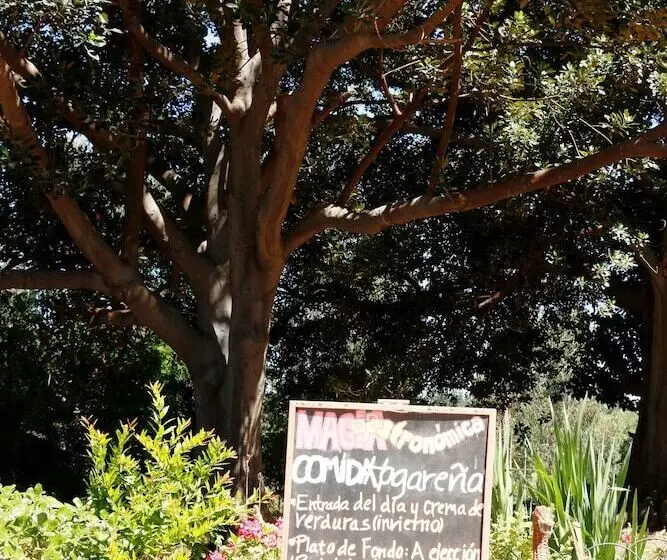 MAGIA Gastronómica
COMIDA Hogareña
• Entrada del día y Crema de
verduras (invierno)
• Plato de Fondo: A elección